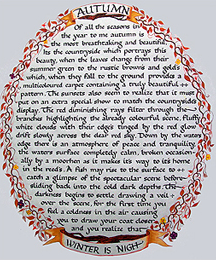 AUTUMN
Of all the seasons in
the year to me autumn is
the most breathtaking and beautiful.
Its the countryside which portrays this
beauty, when the leaves change from their
summer green to the rustic browns and golds
which, when they fall to the ground provides a
multicoloured carpet containing a truly beautiful
pattern. The sunsets seem to realize that it must
put on an extra special show to match the countryside
display. The red diminishing rays filter through the
branches highlighting is already colourful scene, fluffy
white clouds with their edges tinged by the red glow
drift slowly across the clear red sky. Down by the waters
edge there is an atmosphere of peace and tranquility,
the waters surface completely calm, broken occasion-
ally by a moorhen as it makes it's way to its home
in the reeds. A fish may rise to the surface to
catch a glimpse of the spectacular scene before
sliding back into the cold dark depths. The
darkness begins to settle drawing a veil
over the scene, for the first time you
feel a coldness in the air causing
you to draw your coat closer
and you realize that
WINTER IS NIGH